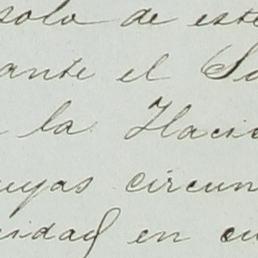 solo de este
ante el
la Hacie
uyas circun
idad en cu